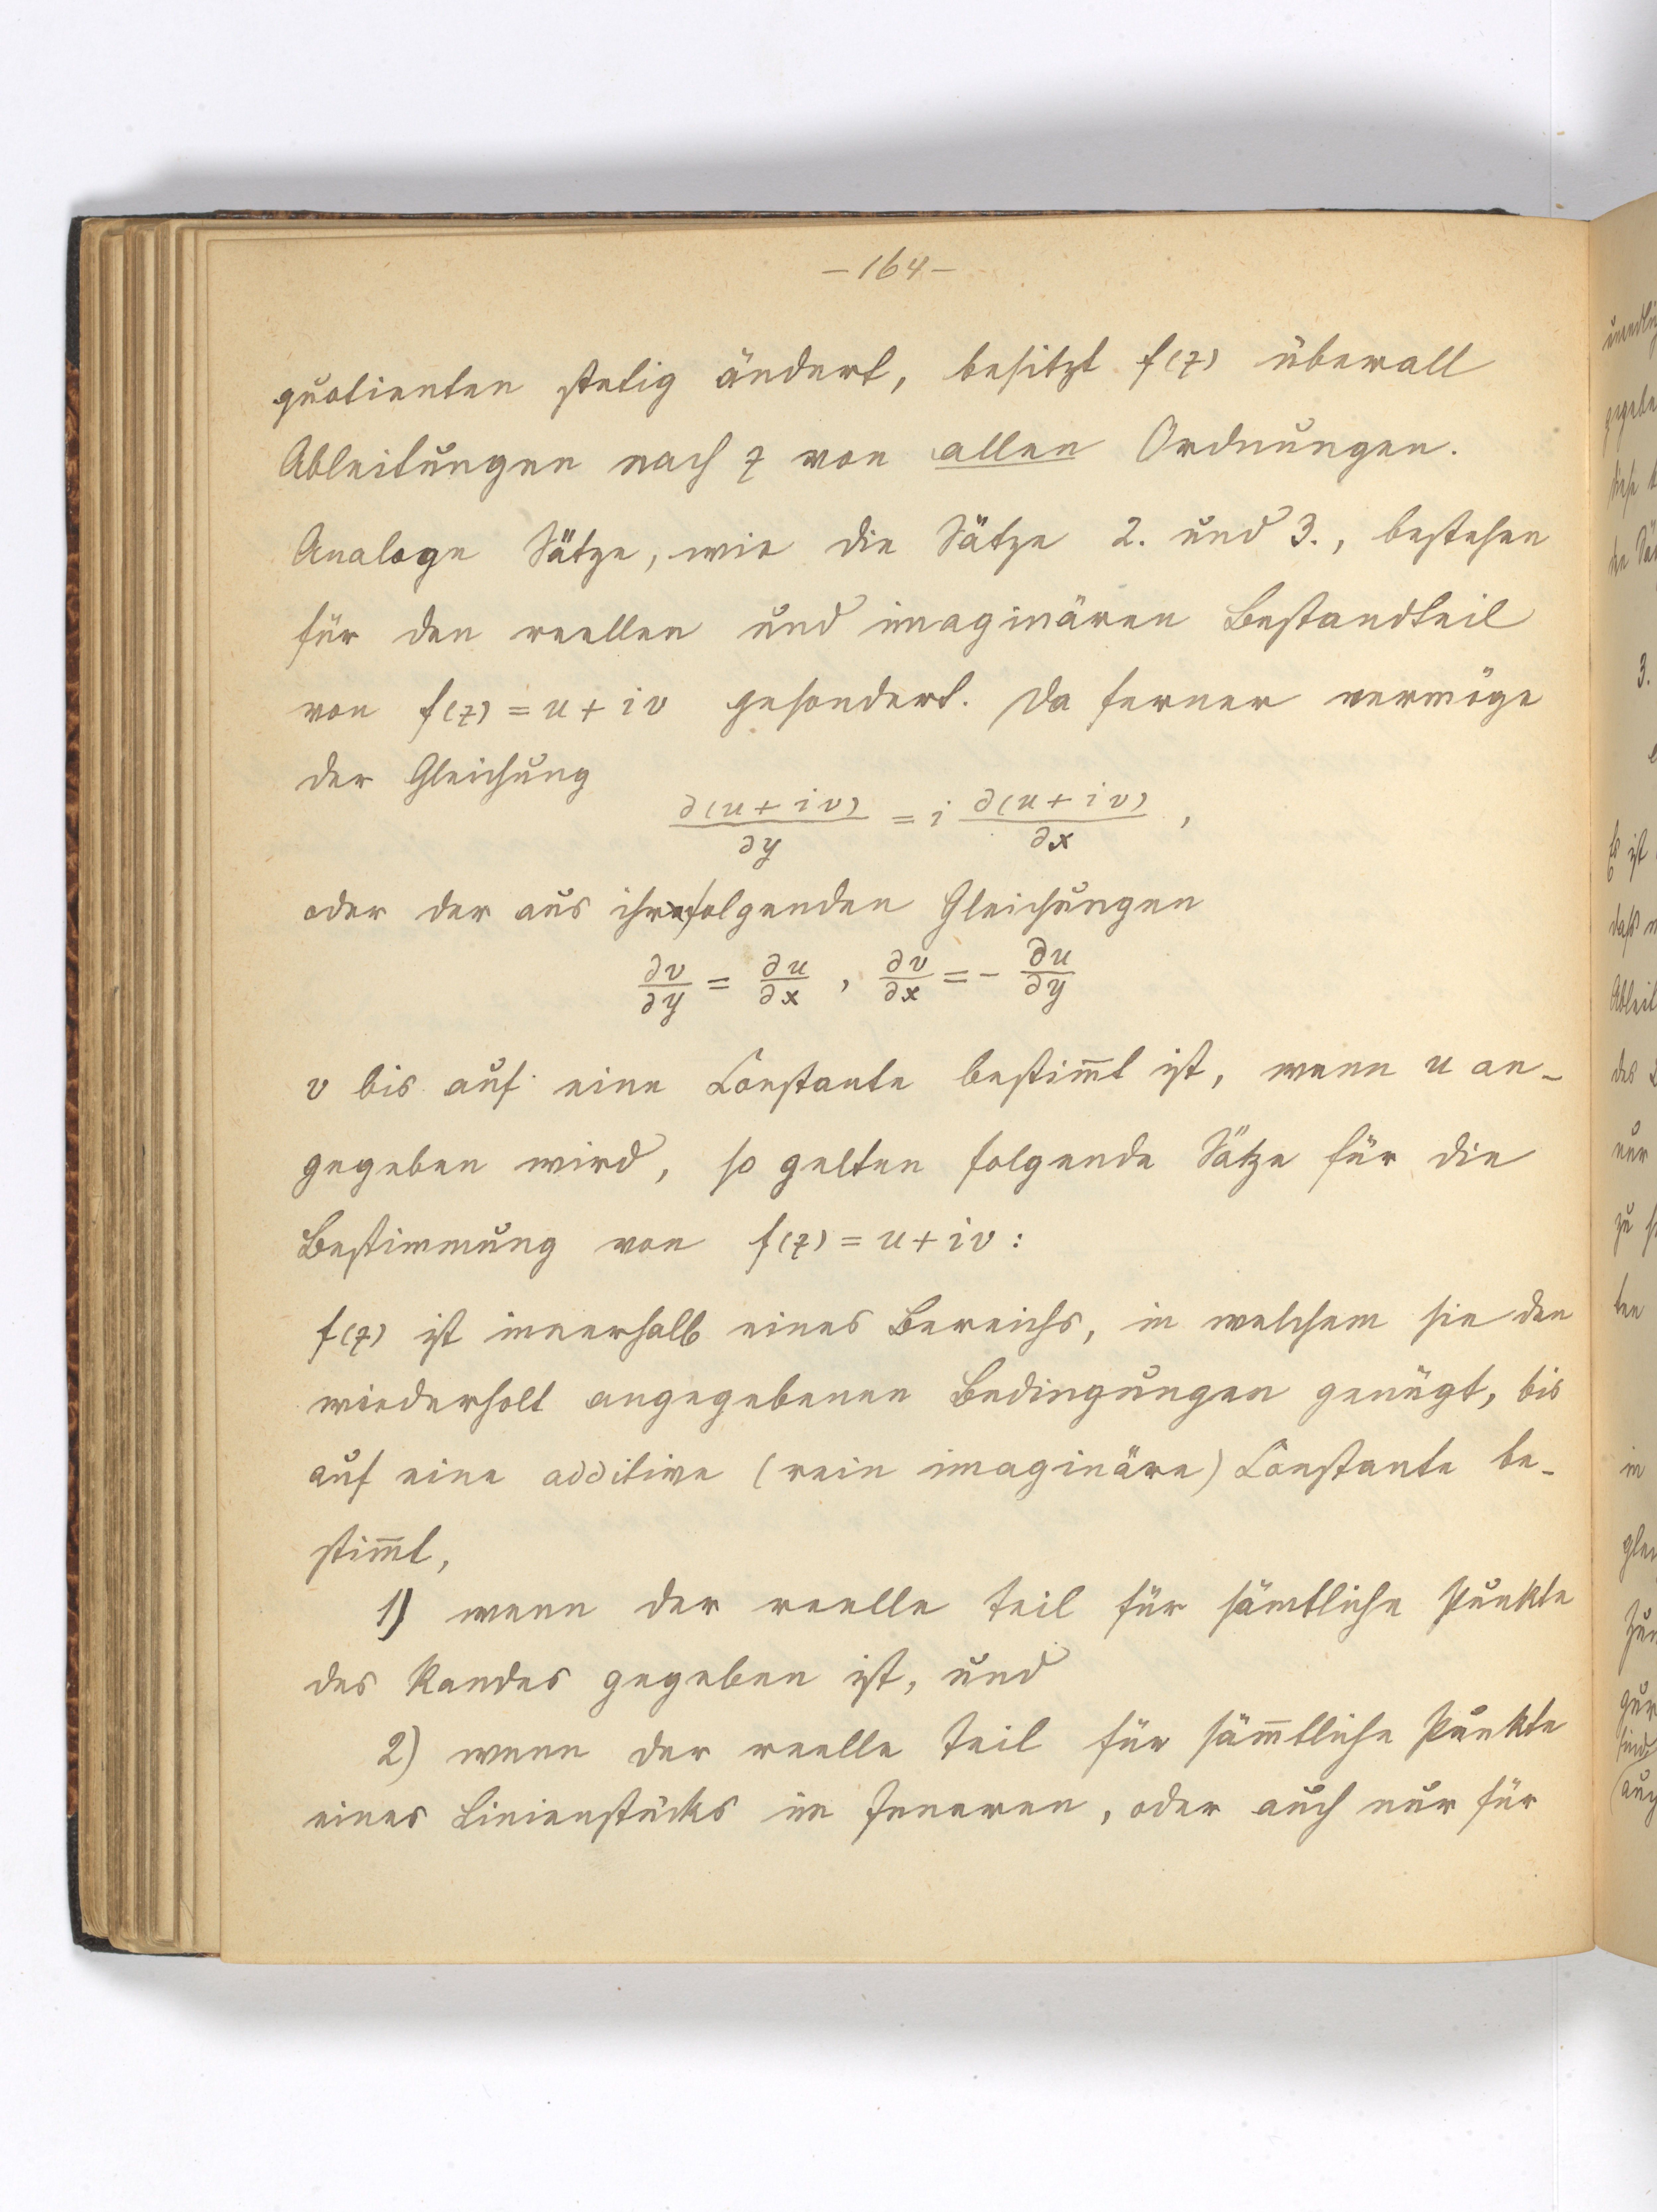 – 164 –
quotienten stetig ändert, besitzt f(z) überall
Ableitungen nach z von allen Ordnungen.
Analoge Sätze, wie die Sätze 2. und 3., bestehen
für den reellen und imaginären Bestandteil
von f(z) = u + iv gesondert. Da ferner vermöge
der Gleichung
∂(u + iv)/∂y = i ∂(u + iv)/∂x ,
oder der aus ihr folgenden Gleichungen
∂v/∂y = ∂u/∂x , ∂v/∂x = – ∂u/∂y
v bis auf eine Constante bestim̄t ist, wenn u an-
gegeben wird, so gelten folgende Sätze für die
Bestimmung von f(z) = u + iv :
f(z) ist innerhalb eines Bereichs, in welchem sie den
wiederholt angegebenen Bedingungen genügt, bis
auf eine additive (rein imaginäre) Constante be-
stim̄t,
1) wenn der reelle Teil für sämtliche Punkte
des Randes gegeben ist, und
2) wenn der reelle Teil für säm̄tliche Punkte
eines Linienstücks im Inneren, oder auch nur für